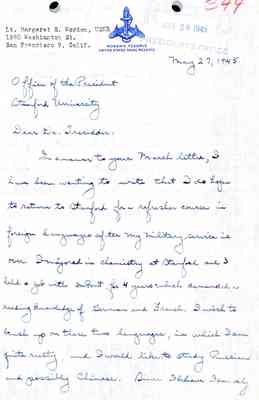 Lt. Margaret E. Worden, USNR
1890 Washington St.
San Francisco 9, Calif.
WOMEN'S RESERVE
UNITED STATES NAVAL RESERVE
1945
PRESIDENT'S OFFICE
May 27, 1945
Office of the President
Stanford University
Dear Dr. Tresidder:
In answer to your March letter, I
have been wanting to write that I do hope
to return to Stanford for a refresher course in
foreign languages after my military service is
over. I majored in chemistry at Stanford and I
held a job with duPont for 4 years which demanded a
reading knowledge of German and French. I wish to
brush up on these two languages, in which I am
quite rusty, and I would like to study Russian
and possibly Chinese. Since I believe I am